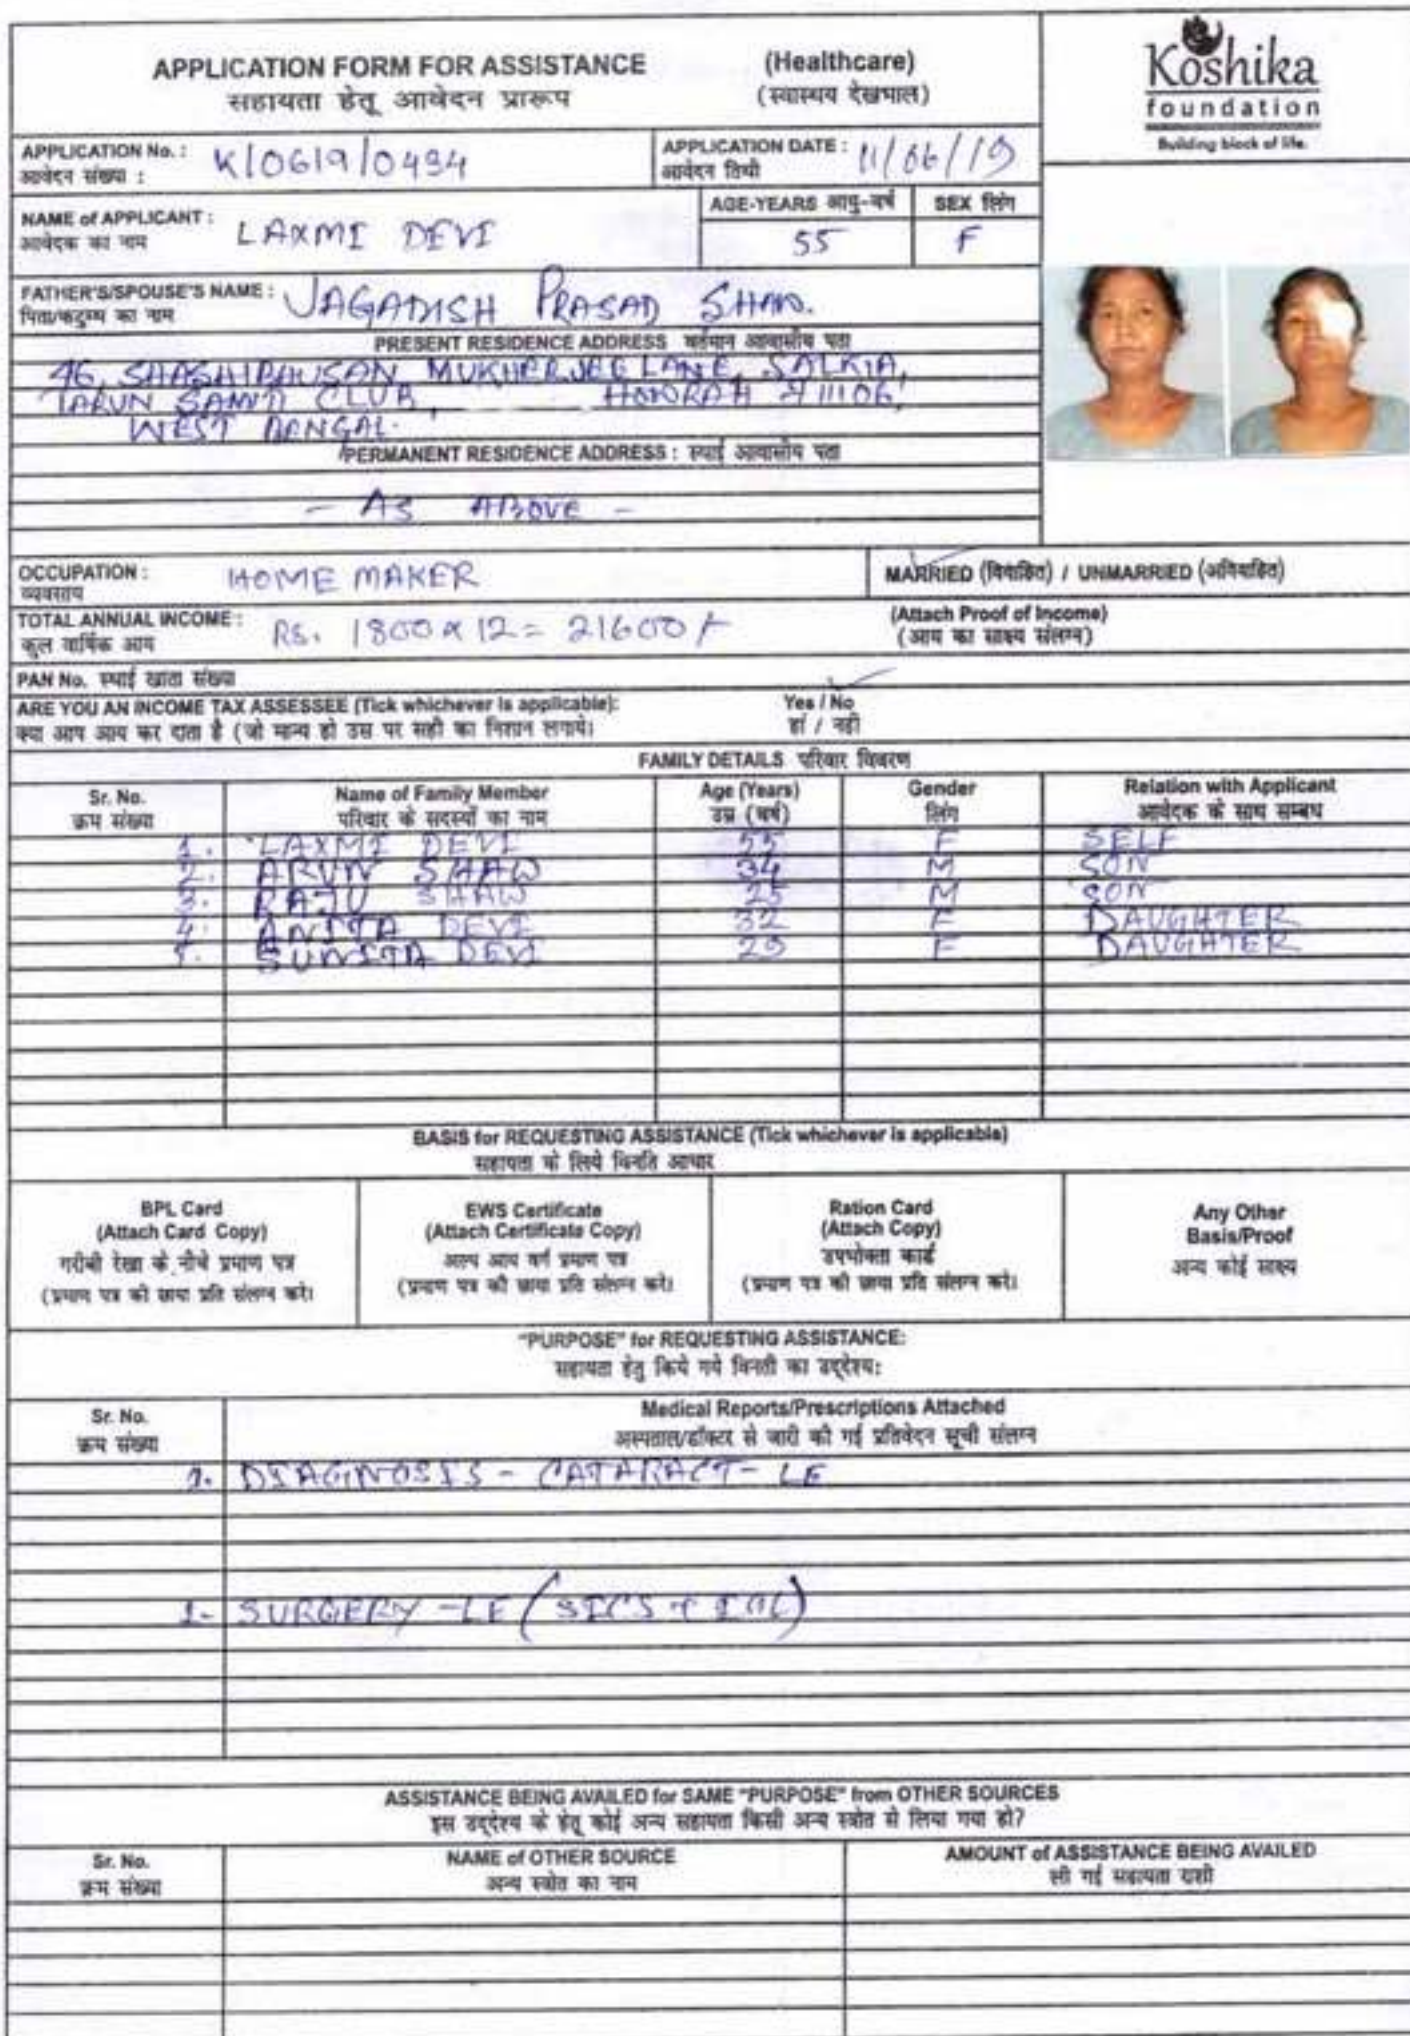 APPLICATION FORM FOR ASSISTANCE (Healthcare)
सहायता हेतू आवेदन प्रारूप (स्वास्थय देखभाल)
Koshika
foundation
Building block of life.
APPLICATION No. : K/0619/0434
आवेदन संख्या :
APPLICATION DATE : 11/06/19
आवेदन तिथी
NAME of APPLICANT : LAXMI DEVI
आवेदक का नाम
AGE-YEARS आयु-वर्ष 55
SEX लिंग F
FATHER'S/SPOUSE'S NAME : JAGADISH PRASAD SHAW.
पिता/कटुम्ब का नाम
PRESENT RESIDENCE ADDRESS वर्तमान आवासीय पता
46, SHASHIBHUSAN MUKHERJEE LANE, SALKIA,
TARUN SAMITI CLUB, HOWRAH 711106,
WEST BENGAL.
PERMANENT RESIDENCE ADDRESS : स्थाई आवासीय पता
- AS ABOVE -
OCCUPATION : HOME MAKER
व्यवसाय
MARRIED (विवाहित) / UNMARRIED (अविवाहित)
TOTAL ANNUAL INCOME : RS. 1800 x 12 = 21600/-
कुल वार्षिक आय
(Attach Proof of Income)
(आय का साक्ष्य संलग्न)
PAN No. स्थाई खाता संख्या
ARE YOU AN INCOME TAX ASSESSEE (Tick whichever is applicable): Yes / No
क्या आप आय कर दाता है (जो मान्य हो उस पर सही का निशान लगाये। हां / नही
FAMILY DETAILS परिवार विवरण
Sr. No. Name of Family Member Age (Years) Gender Relation with Applicant
क्रम संख्या परिवार के सदस्यों का नाम उम्र (वर्ष) लिंग आवेदक के साथ सम्बध
1. LAXMI DEVI 55 F SELF
2. ARUN SHAW 34 M SON
3. RAJU SHAW 25 M SON
4. ANITA DEVI 32 F DAUGHTER
SUNITA DEVI 29 F DAUGHTER
BASIS for REQUESTING ASSISTANCE (Tick whichever is applicable)
सहायता के लिये विनति आधार
BPL Card
(Attach Card Copy)
गरीबी रेखा के नीचे प्रमाण पत्र
(प्रमाण पत्र की छाया प्रति संलग्न करे।
EWS Certificate
(Attach Certificate Copy)
अल्प आय वर्ग प्रमाण पत्र
(प्रमाण पत्र की छाया प्रति संलग्न करे।
Ration Card
(Attach Copy)
उपभोक्ता कार्ड
(प्रमाण पत्र की छाया प्रति संलग्न करे।
Any Other
Basis/Proof
अन्य कोई साक्ष्य
"PURPOSE" for REQUESTING ASSISTANCE:
सहायता हेतु किये गये विनती का उद्देश्य:
Sr. No. Medical Reports/Prescriptions Attached
क्रम संख्या अस्पताल/डॉक्टर से जारी की गई प्रतिवेदन सूची संलग्न
DIAGNOSIS - CATARACT - LE
1- SURGERY - LE (SICS + IOL)
ASSISTANCE BEING AVAILED for SAME "PURPOSE" from OTHER SOURCES
इस उद्देश्य के हेतू कोई अन्य सहायता किसी अन्य स्त्रोत से लिया गया हो?
Sr. No. NAME of OTHER SOURCE AMOUNT of ASSISTANCE BEING AVAILED
क्रम संख्या अन्य स्त्रोत का नाम ली गई सहायता राशी